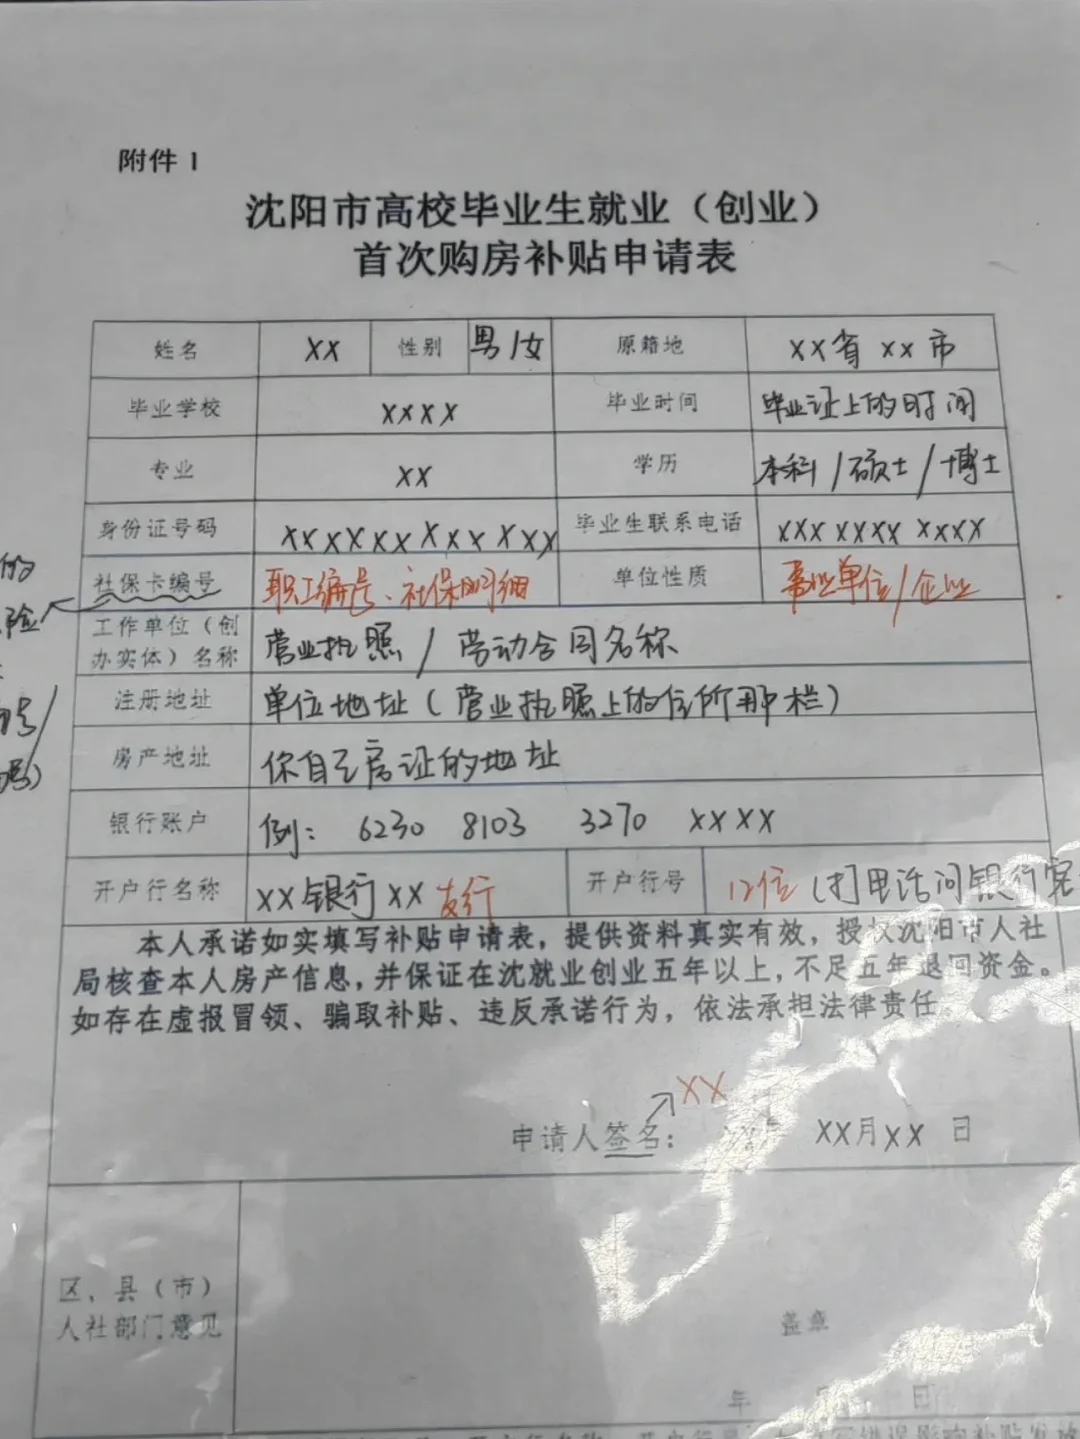 附件 1
沈阳市高校毕业生就业（创业）
首次购房补贴申请表
姓名 XX 性别 男/女 原籍地 XX省 XX市
毕业学校 XXXX 毕业时间 毕业证上的时间
专业 XX 学历 本科/硕士/博士
身份证号码 XXXXXXXXXXXX 毕业生联系电话 XXX XXXX XXXX
的
社保卡编号 职工编号、社保明细 单位性质 事业单位/企业
险
工作单位（创
办实体）名称 营业执照/劳动合同名称
注册地址 单位地址（营业执照上的住所那栏）
号/
房产地址 你自己房证的地址
银行账户 例： 6230 8103 3270 XXXX
开户行名称 XX银行XX支行 开户行号 12位（打电话问银行客
本人承诺如实填写补贴申请表，提供资料真实有效，授权沈阳市人社
局核查本人房产信息，并保证在沈就业创业五年以上，不足五年退回资金。
如存在虚报冒领、骗取补贴、违反承诺行为，依法承担法律责任
XX
申请人签名： XX月XX 日
区、县（市）
人社部门意见
盖章
年 日